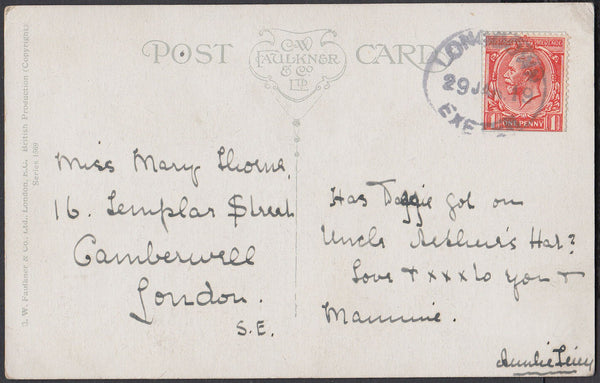 POST CARD
C.W.
FAULKNER
& CO
LTD.
29 JA 19
EXETE
ONE PENNY
Miss Mary Thorne,
16. Templar Street
Camberwell
London.
S.E.
Has Doggie got on
Uncle Arthur's Hat?
Love + xxx to you +
Mammie.
Auntie
C. W. Faulkner & Co., Ltd., London, E.C. British Production (Copyright)
Series 1909